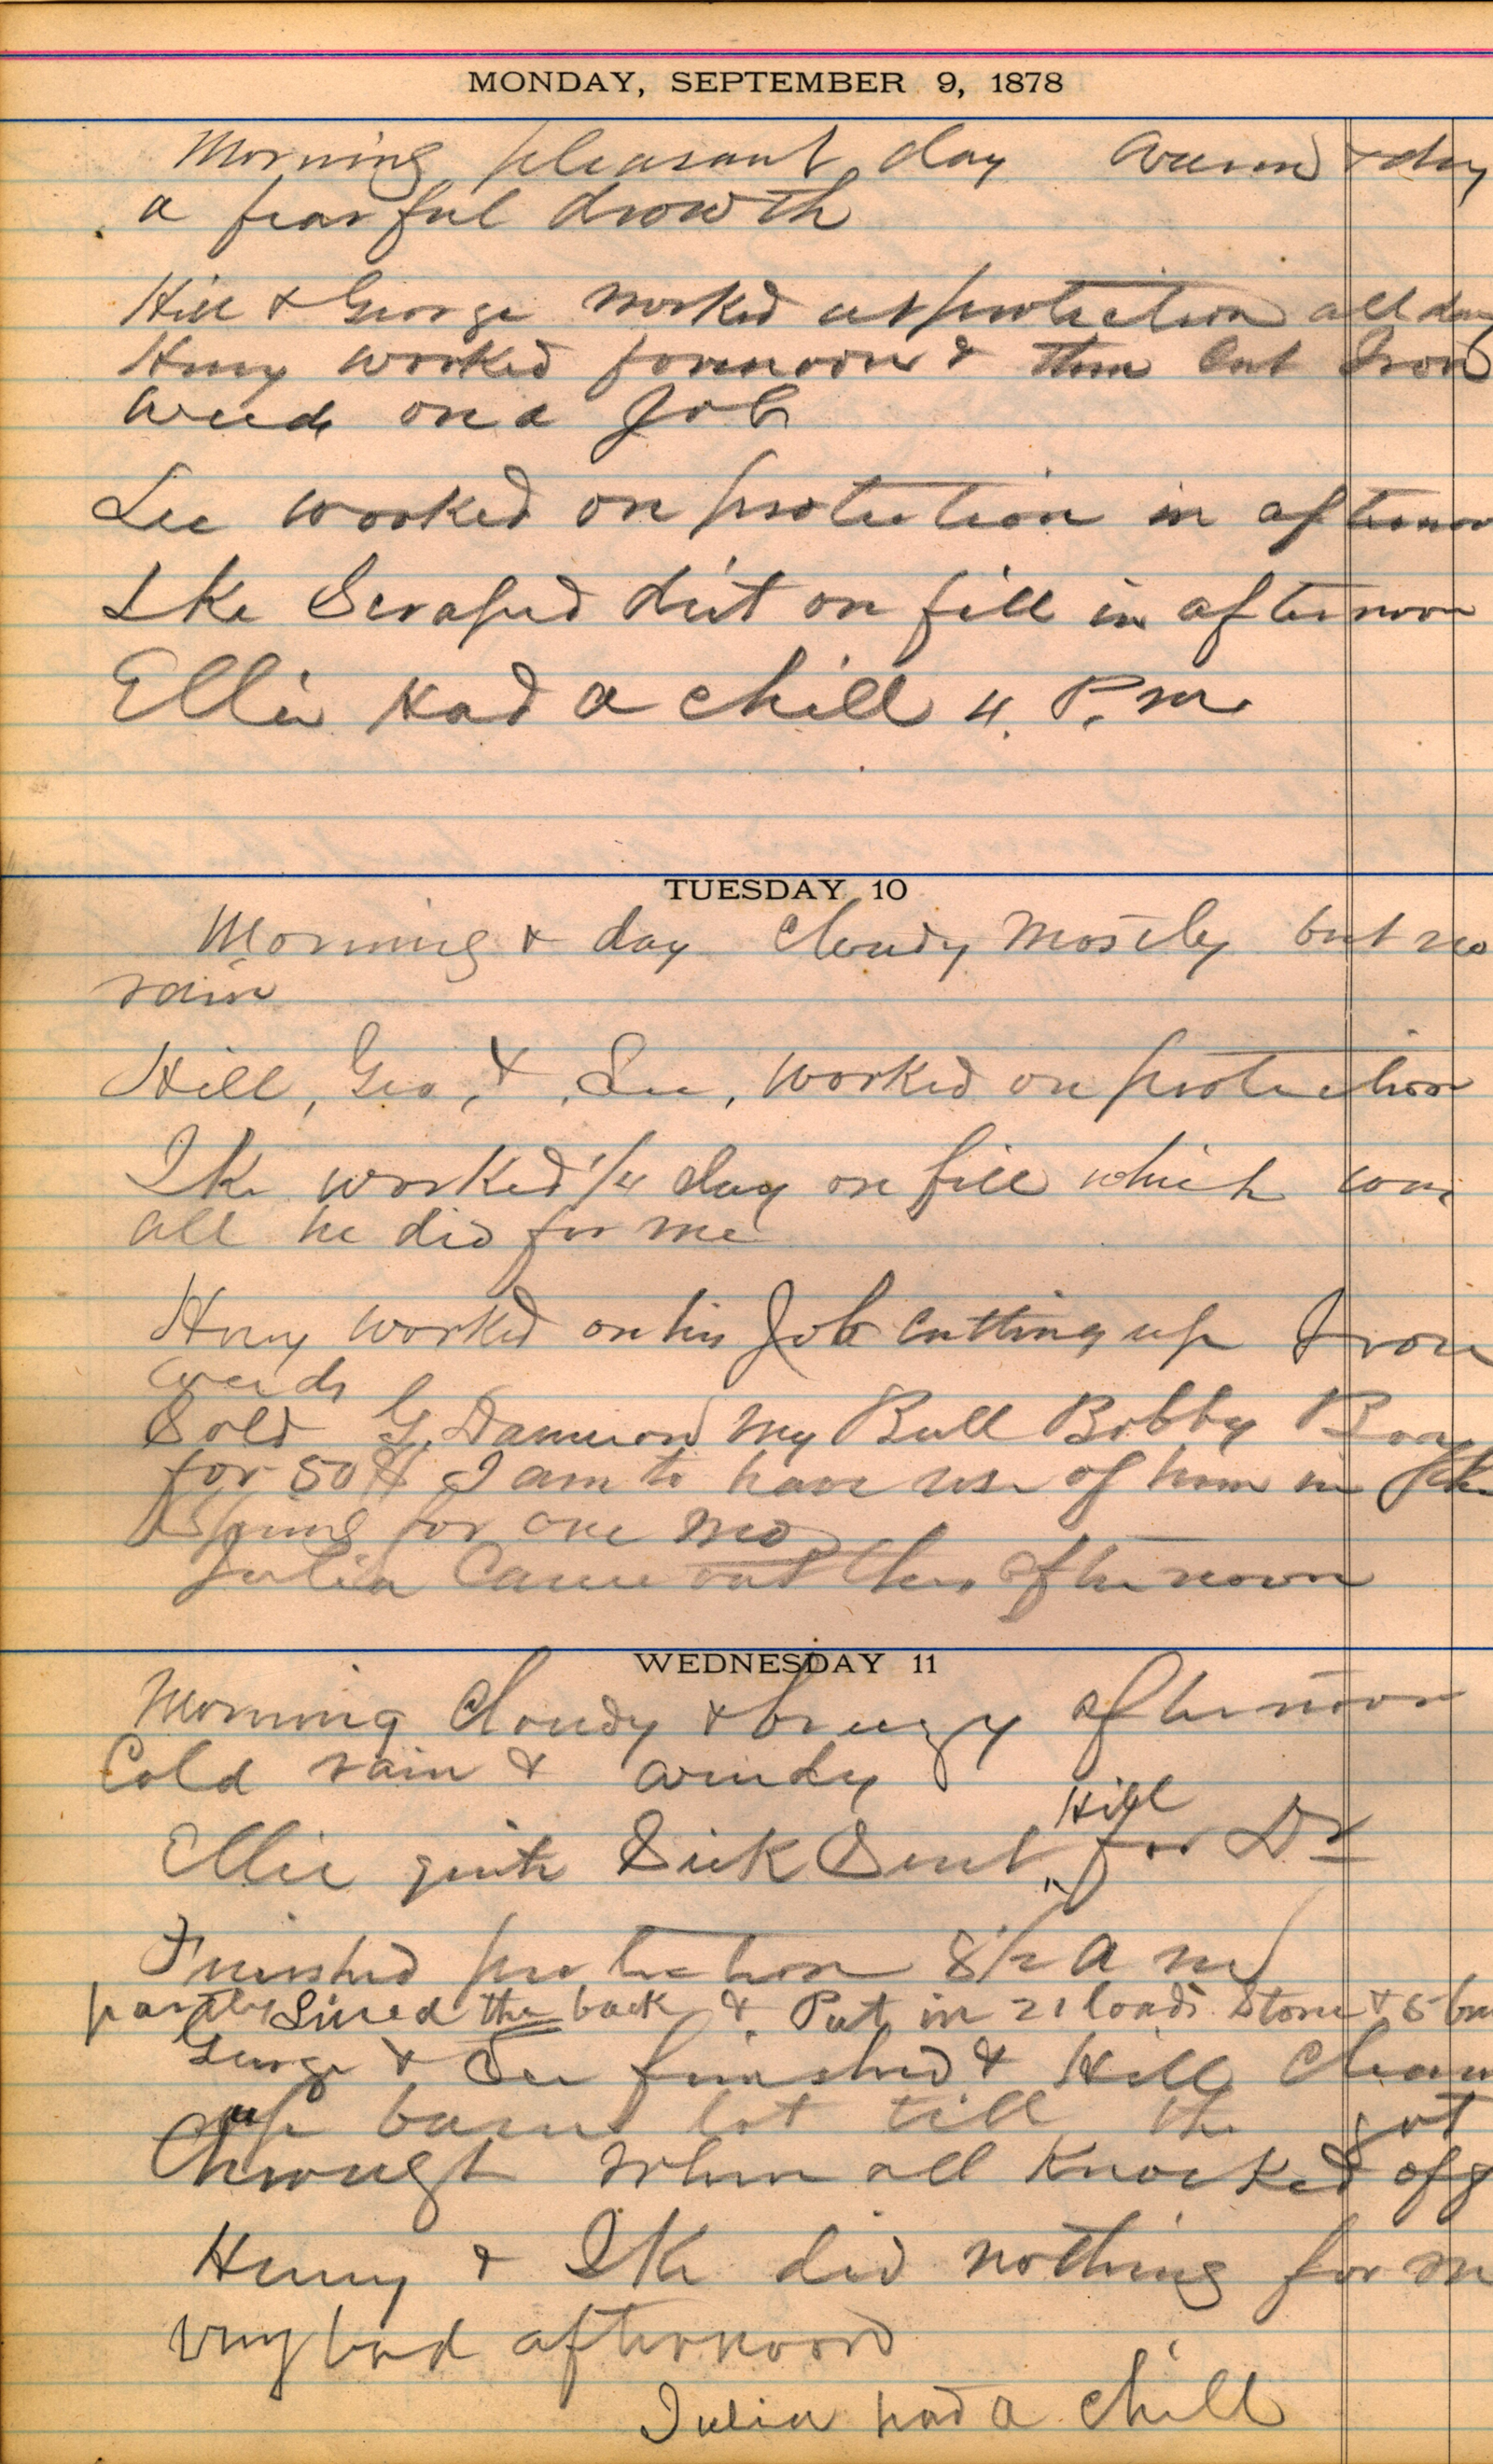 MONDAY, SEPTEMBER 9, 1878
Morning pleasant day warm & dry
a fearful drowth
Hill & George worked at protection all day
Henry worked forenoon & then cut Iron
weeds on a Job
Lee worked on protection in afternoon
Ike Scraped dirt on fill in afternoon
Ellie Had a chill 4 P.m.
TUESDAY 10
Morning & day Cloudy Mostly but no
rain
Hill, Geo, & Lee, worked on protection
Ike worked 1/4 day on fill which was
all he did for me
Henry worked on his Job cutting up Iron
weeds
Sold G. Dameron my Bull Bobby
for 50 $ I am to have use of him in the
Spring for one mo
Julia Came out this afternoon
WEDNESDAY 11
Morning Cloudy & breezy afternoon
Cold rain & windy
Hill
Ellie quite Sick Sent for Dr
Finished protection 8 1/2 a m
partly Lined the back & Put in 21 loads Stone & 5
George & Lee finished & Hill Clean
up barn lot till the got
through when all Knocked off
Henry & Ike did nothing for m
very bad afternoon
Julia had a chill